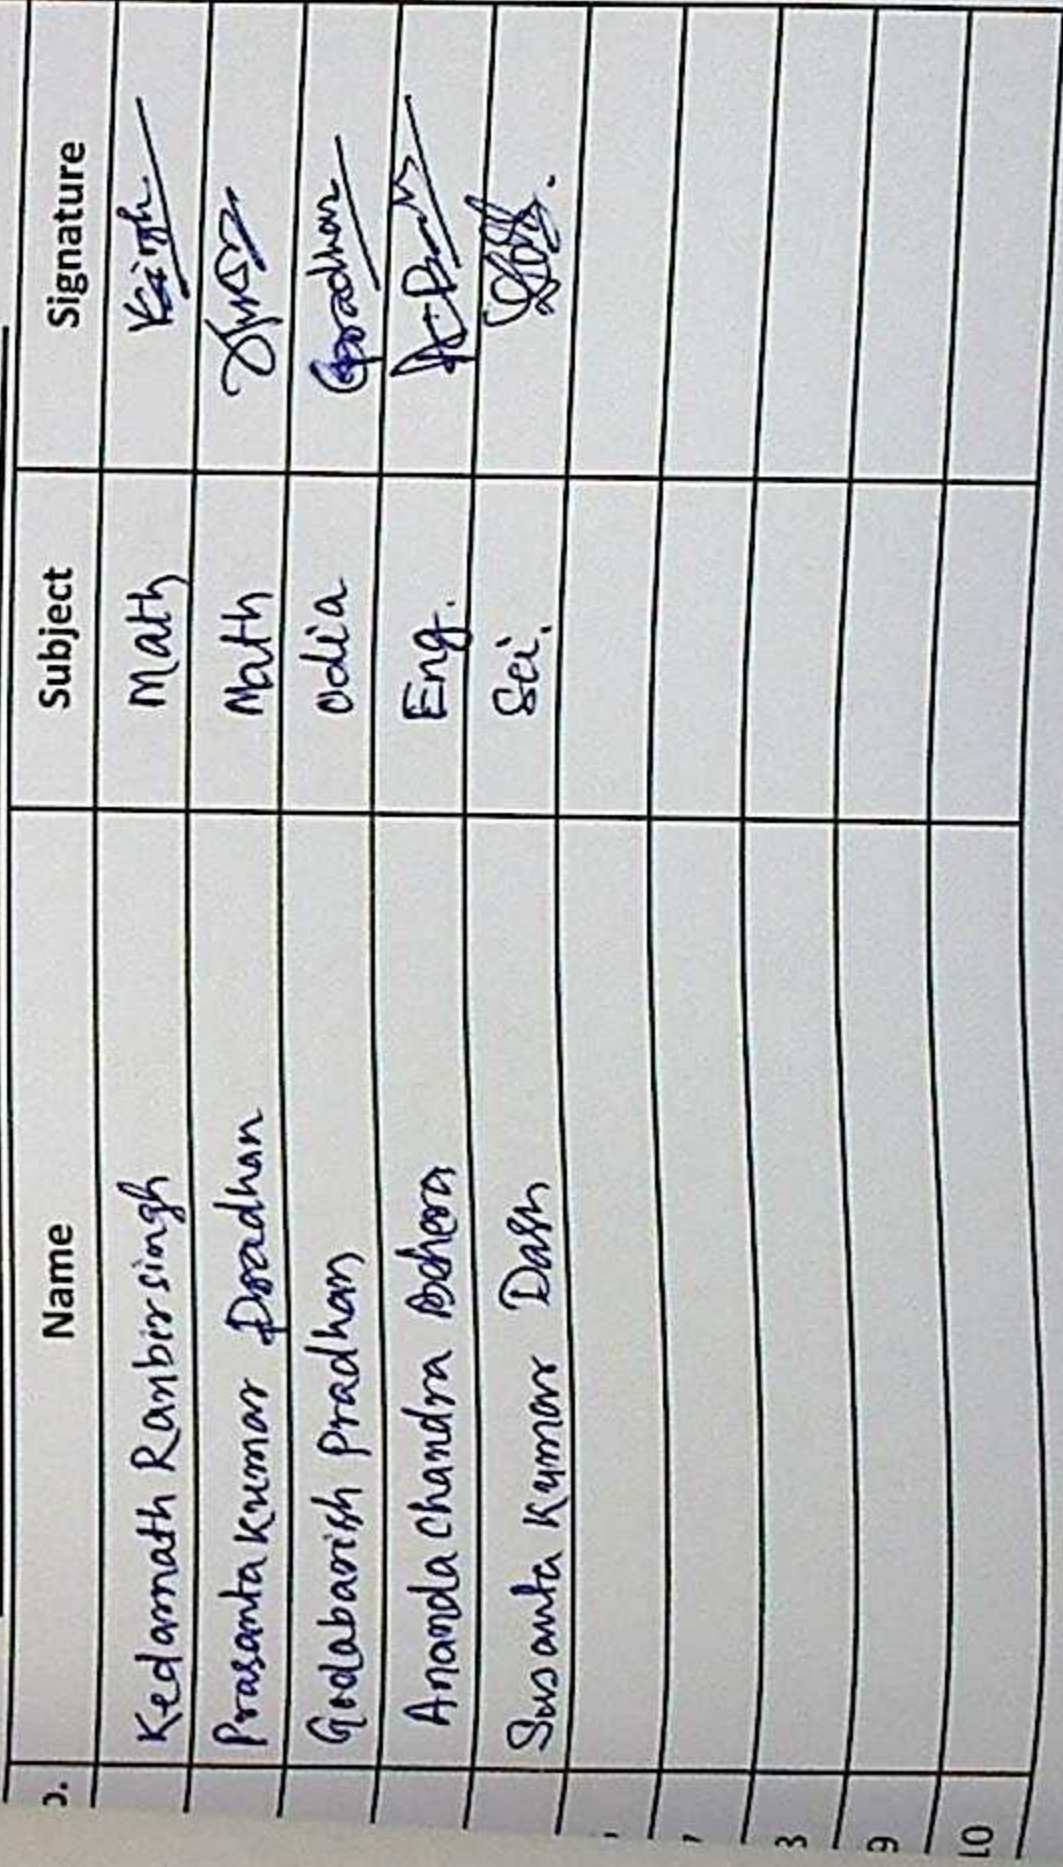 Name Subject Signature
Kedarnath Ranbirsingh Math
Prasanta Kumar Pradhan Math
Godabarish Pradhan Odia Gpradhan
Ananda Chandra Behera Eng.
Susanta Kumar Dash Sci.
9
10